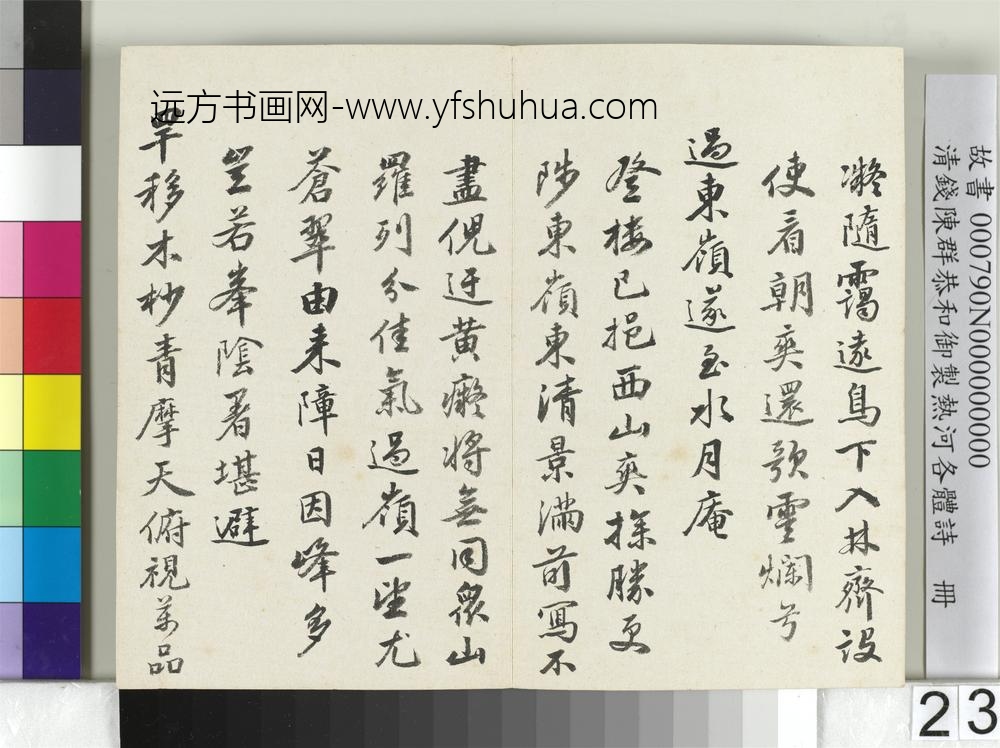 故書 000790N000000000
清錢陳群恭和御製熱河各體詩 冊
远方书画网-www.yfshuhua.com
凝隨靄遠鳥下入林齊設
使看朝爽還歌雲爛兮
過東嶺遂至水月庵
登樓已挹西山爽探勝更
陟東嶺東清景滿前寫不
盡倪迂黃癡將無同眾山
羅列分佳氣過嶺一望尤
蒼翠由來障日因峰多
豈若峯陰暑堪避
早移木杪青摩天俯視萬品
23